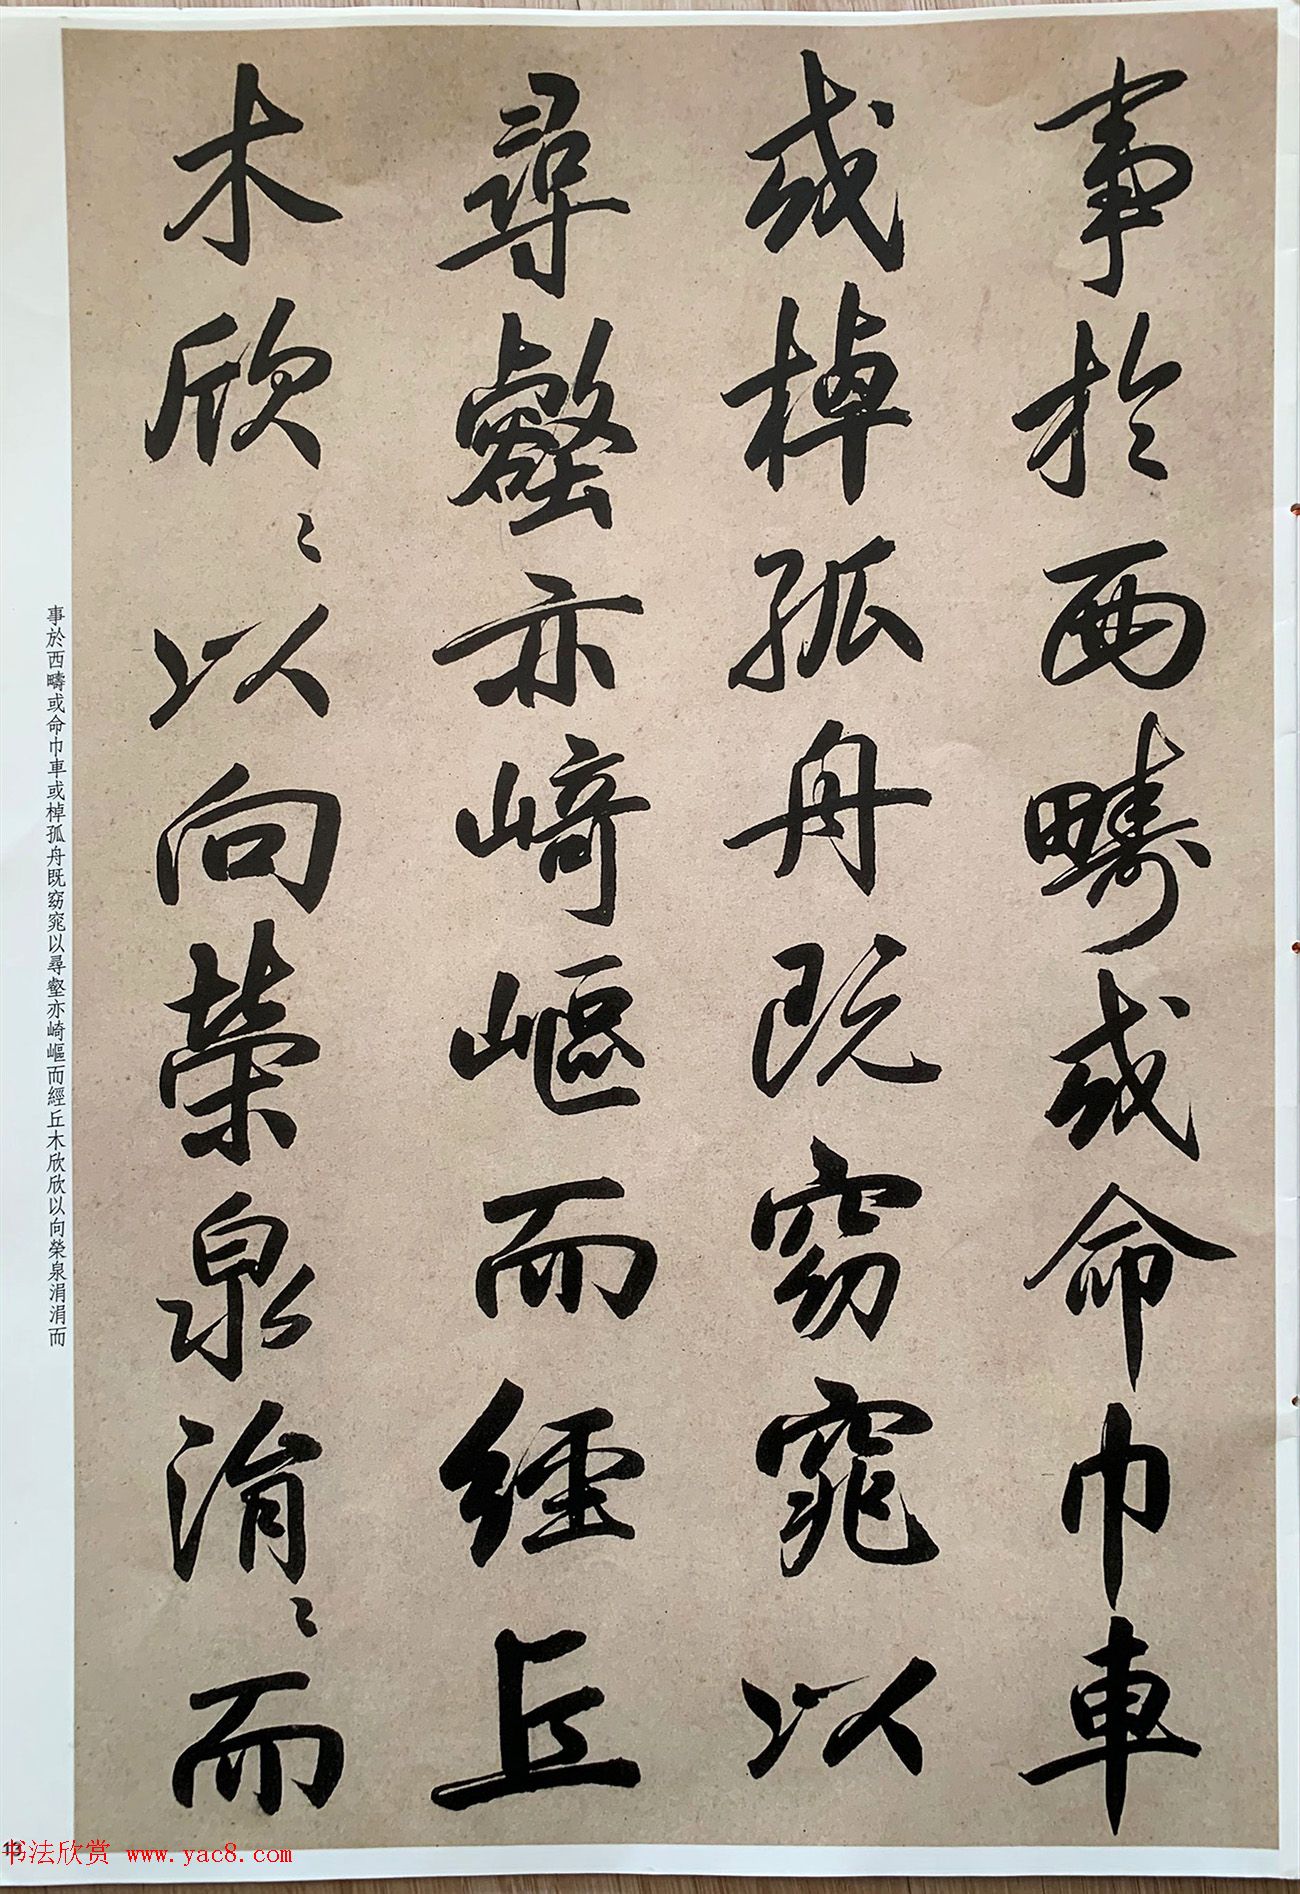 事於西疇或命巾車
或棹孤舟既窈窕以
尋壑亦崎嶇而經丘
木欣〻以向榮泉涓〻而
事於西疇或命巾車或棹孤舟既窈窕以尋壑亦崎嶇而經丘木欣欣以向榮泉涓涓而
13
书法欣赏 www.yac8.com